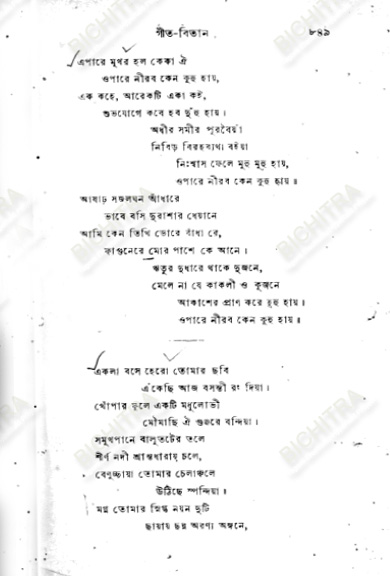 গীত-বিতান ৮৪৯
এপারে মুখর হল কেকা ঐ
ওপারে নীরব কেন কুহু হায়,
এক কহে, আরেকটি একা কই,
শুভযোগে কবে হব দুঁহু হায়।
অধীর সমীর পুরবৈয়াঁ
নিবিড় বিরহব্যথা বইয়া
নিঃশ্বাস ফেলে মুহু মুহু হায়,
ওপারে নীরব কেন কুহু হায়॥
আষাঢ় সজলঘন আঁধারে
ভাবে বসি দুরাশার ধেয়ানে
আমি কেন তিথি ডোরে বাঁধা রে,
ফাগুনেরে মোর পাশে কে আনে।
ঋতুর দুধারে থাকে দুজনে,
মেলে না যে কাকলী ও কূজনে
আকাশের প্রাণ করে হুহু হায়।
ওপারে নীরব কেন কুহু হায়॥
একলা বসে হেরো তোমার ছবি
এঁকেছি আজ বসন্তী রং দিয়া।
খোঁপার ফুলে একটি মধুলোভী
মৌমাছি ঐ গুঞ্জরে বন্দিয়া।
সমুখপানে বালুতটের তলে
শীর্ণ নদী শ্রান্তধারায় চলে,
বেণুচ্ছায়া তোমার চেলাঞ্চলে
উঠিছে স্পন্দিয়া॥
মগ্ন তোমার স্নিগ্ধ নয়ন দুটি
ছায়ায় ছন্ন অরণ্য অঙ্গনে,
BICHITRA